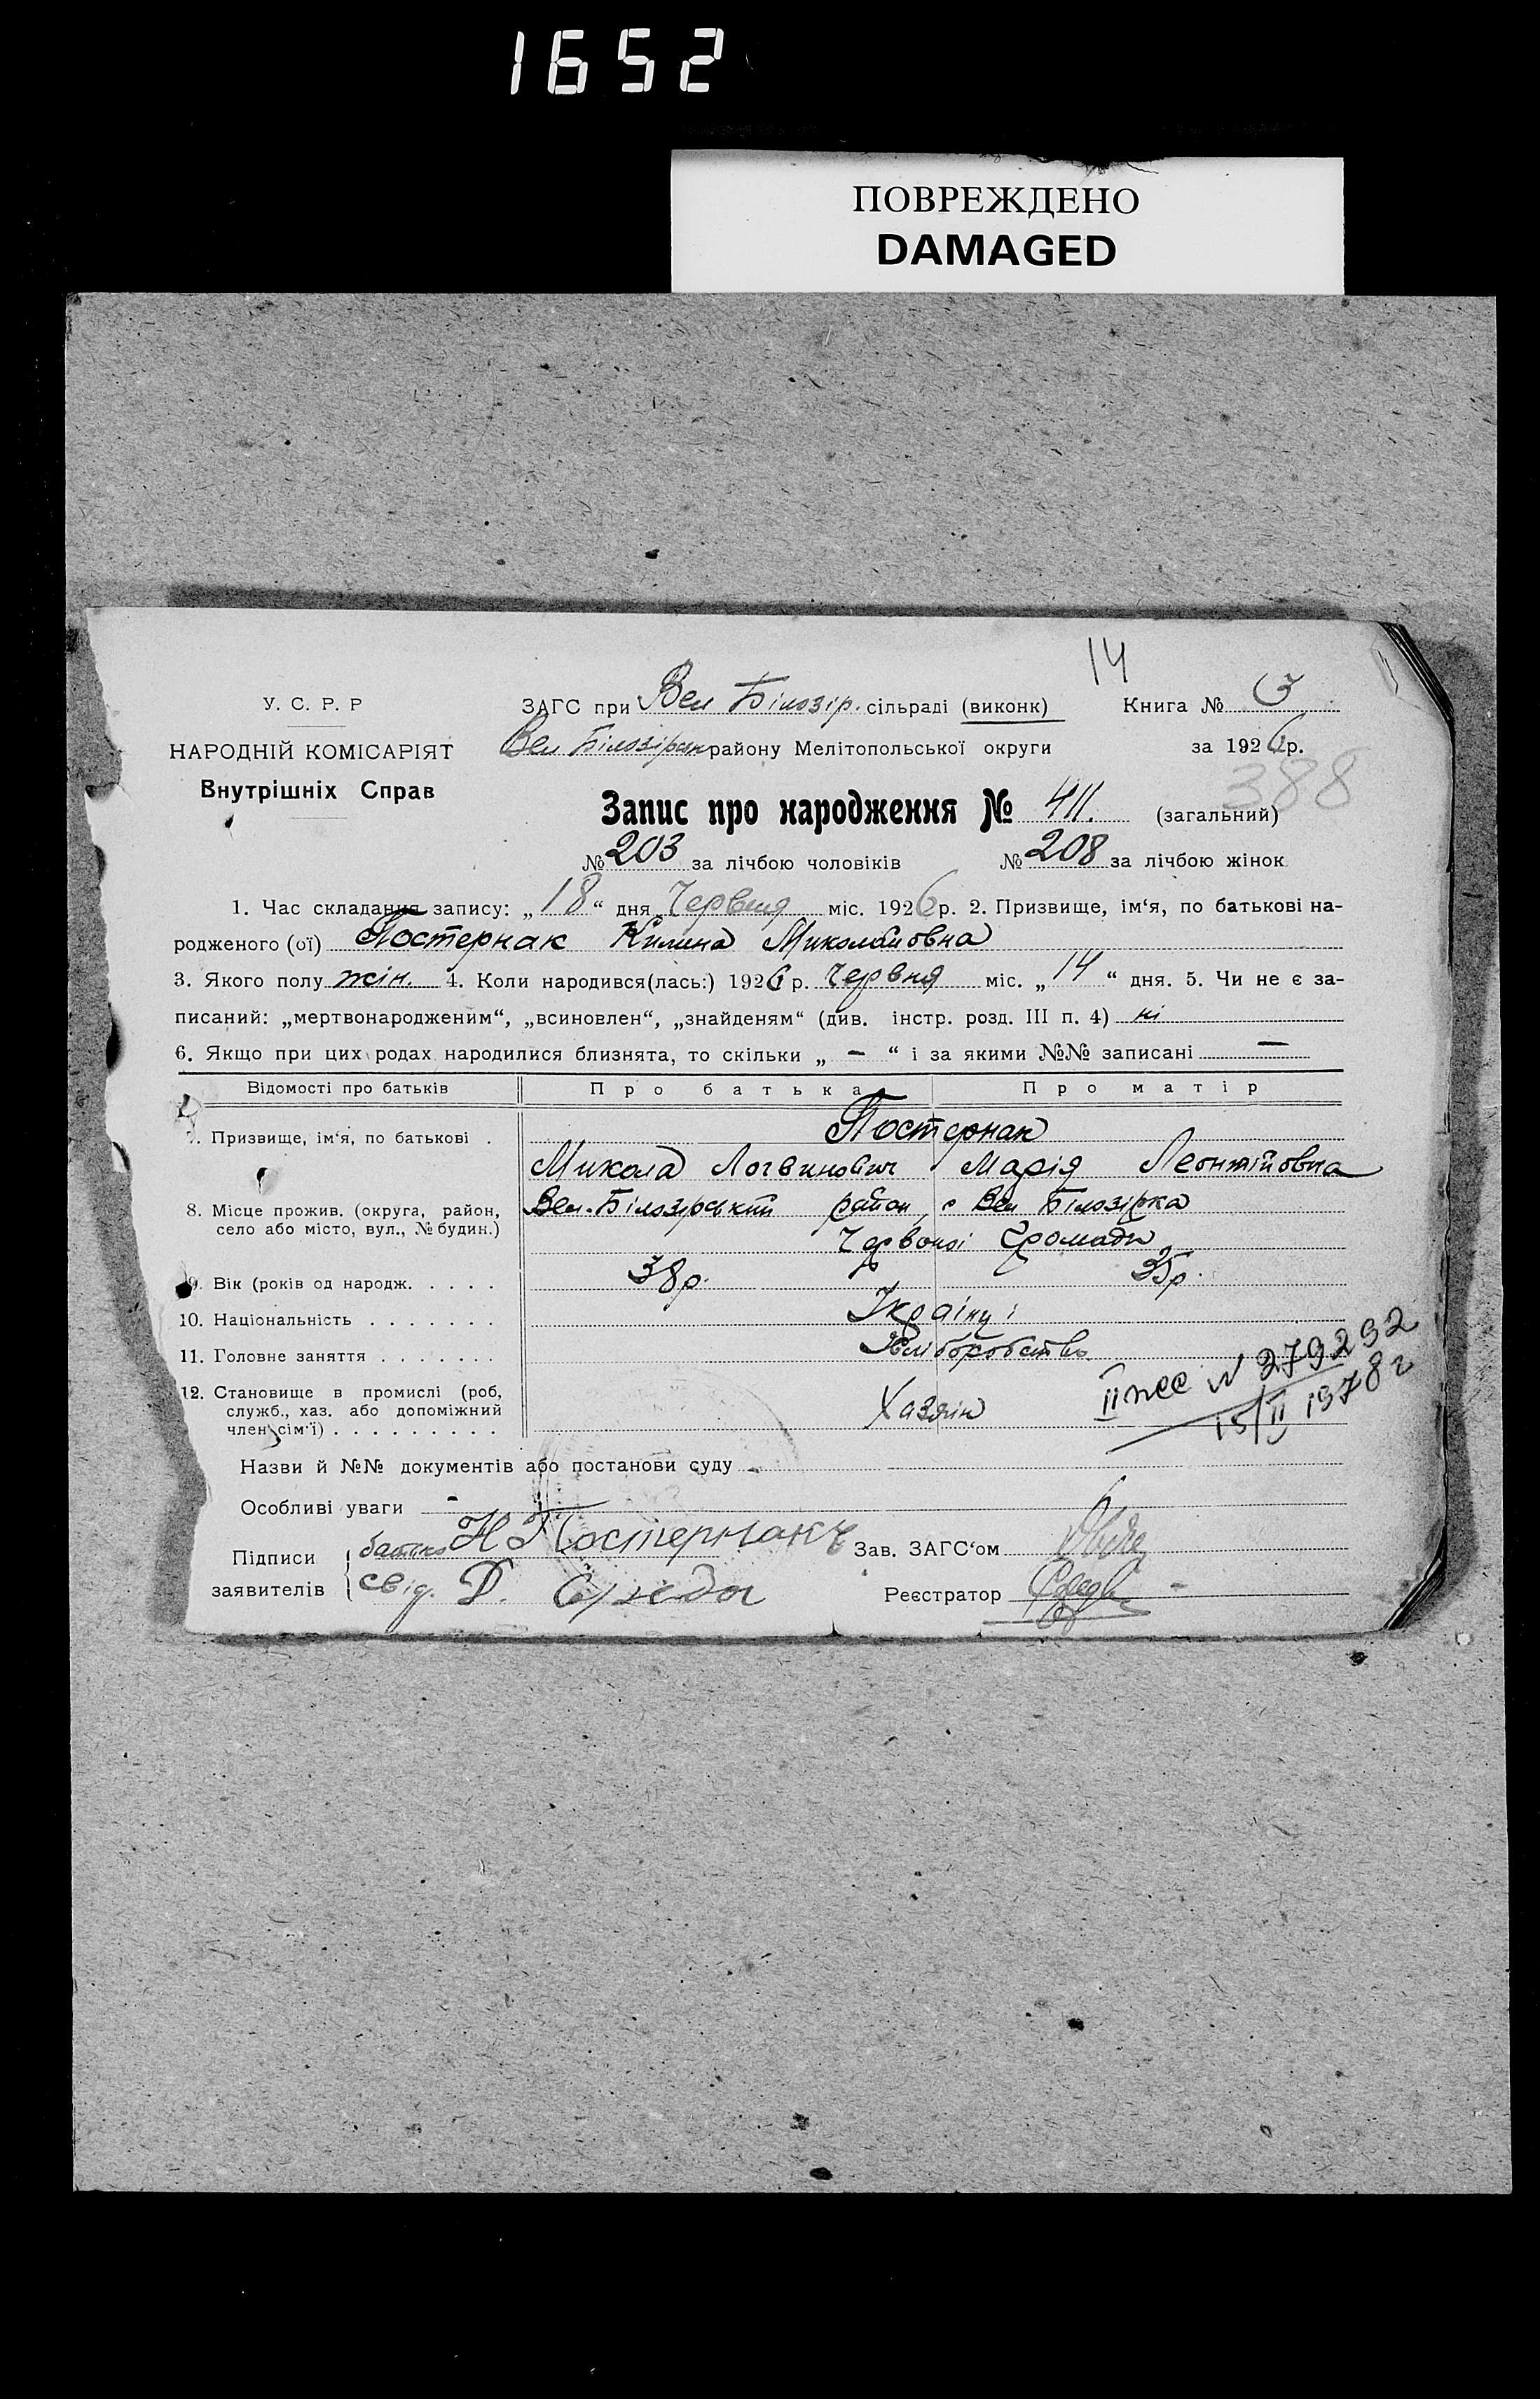 1652
ПОВРЕЖДЕНО
DAMAGED
14
У. С. Р. Р
ЗАГС при Вел Білозір. сільраді (виконк)
Книга № 3
НАРОДНІЙ КОМІСАРІЯТ
Вел Білозірськ району Мелітопольської округи
за 1926 р.
Внутрішніх Справ
388
Запис про народження № 411. (загальний)
№ 203 за лічбою чоловіків № 208 за лічбою жінок
1. Час складання запису: „18“ дня Червня міс. 1926 р. 2. Призвище, ім‘я, по батькові на-
родженого (ої) Постернак Килина Миколаївна
3. Якого полу жін. 4. Коли народився(лась:) 1926 р. Червня міс. „14“ дня. 5. Чи не є за-
писаний: „мертвонародженим“, „всиновлен“, „знайденям“ (див. інстр. розд. III п. 4) ні
6. Якщо при цих родах народилися близнята, то скільки „ – “ і за якими №№ записані –
Відомості про батьків Про батька Про матір
7. Призвище, ім‘я, по батькові . Постернак
Микола Логвинович Марія Леонтійовна
8. Місце прожив. (округа, район, Вел. Білозірський район, с Вел Білозірка
село або місто, вул., № будин.) Червоної Громади
9. Вік (років од народж. . . . . 38 р. 35 р.
10. Національність . . . . . . . Українці
11. Головне заняття . . . . . . . Хліборобство
12. Становище в промислі (роб, служб., хаз. або допоміжний член сім‘ї) . . . . . . . . . Хазяін
II № 279292
15/II 1978 г
Назви й №№ документів або постанови суду -
Особливі уваги -
Підписи заявителів
батько Н Постернакъ
свід. Д.
Зав. ЗАГС‘ом
Реєстратор